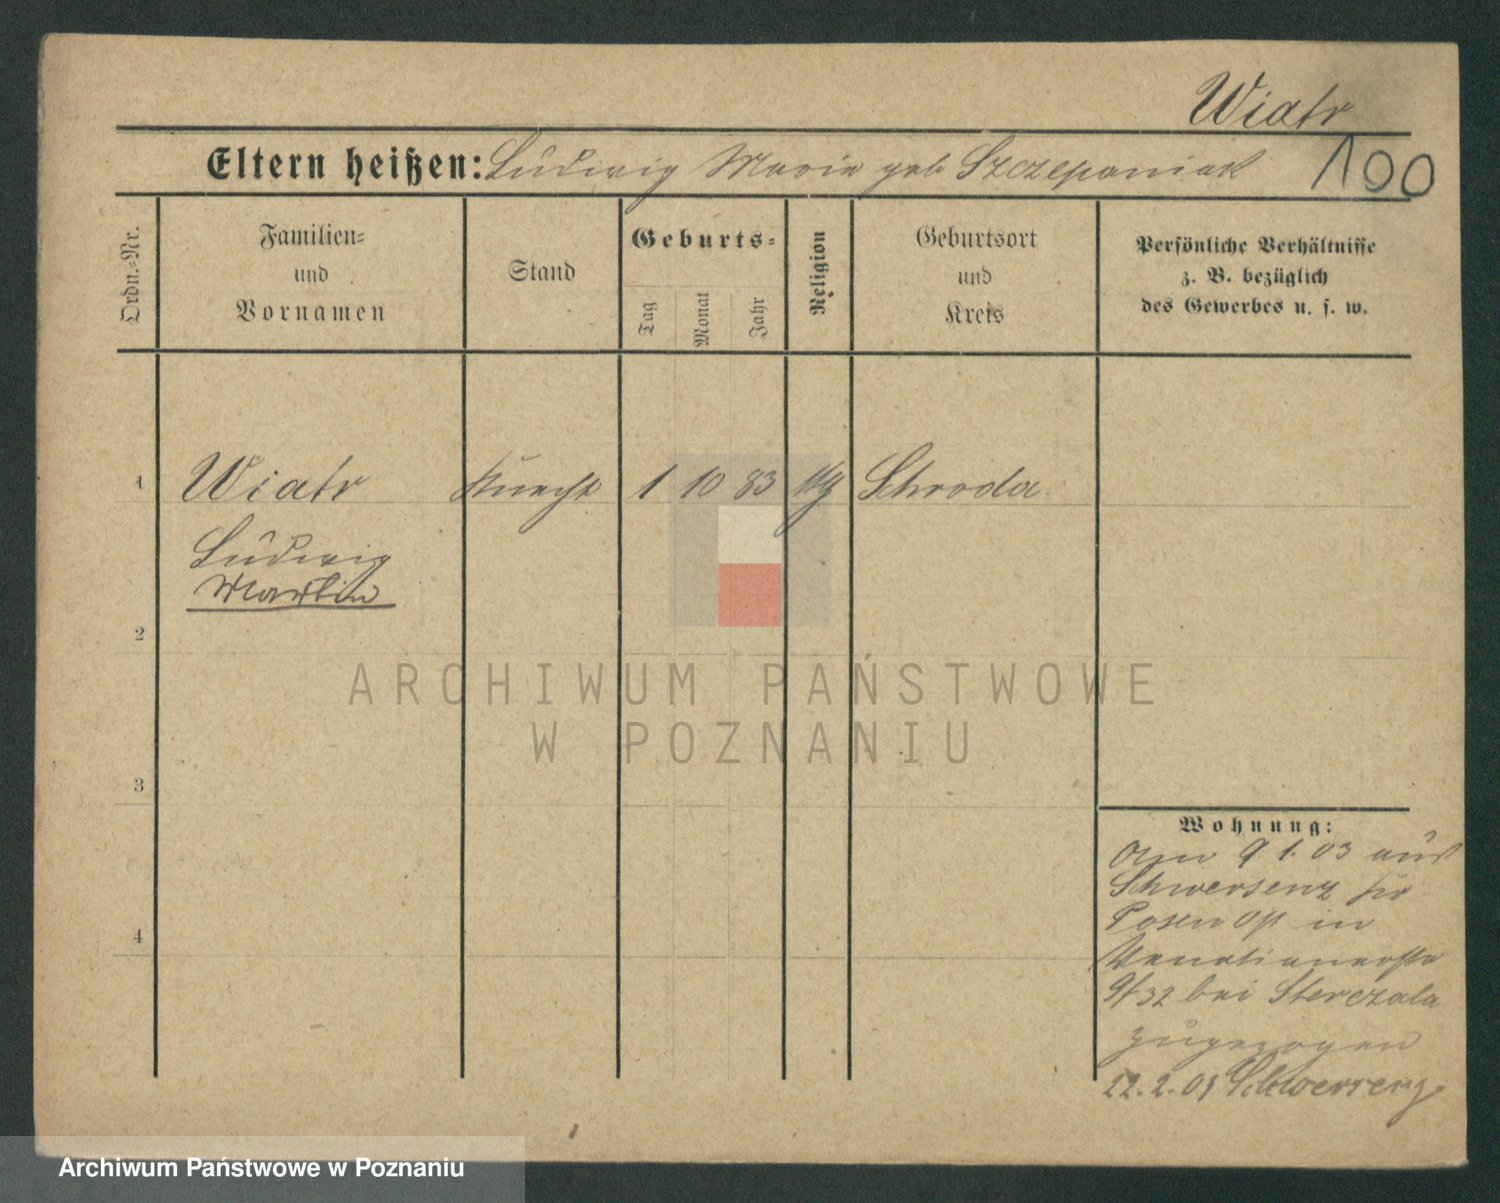 Wiatr
Eltern heißen: Ludwig Marie geb Szczepaniak
100
Ordn.=Nr.
Familien=
und
Vornamen
Stand
Geburts=
Tag
Monat
Jahr
Religion
Geburtsort
und
Kreis
Persönliche Verhältnisse
z. B. bezüglich
des Gewerbes u. s. w.
1 Wiatr Knecht 1 10 83 kg Schroda
Ludwig
Martin
2
3
4
Wohnung:
Am 9.1.03 aus
Schwersenz
Posen Ost in
Venetianerstr
9/32 bei Sterczala
zugezogen
22.2.03 Schwersenz
ARCHIWUM PAŃSTWOWE
W POZNANIU
Archiwum Państwowe w Poznaniu